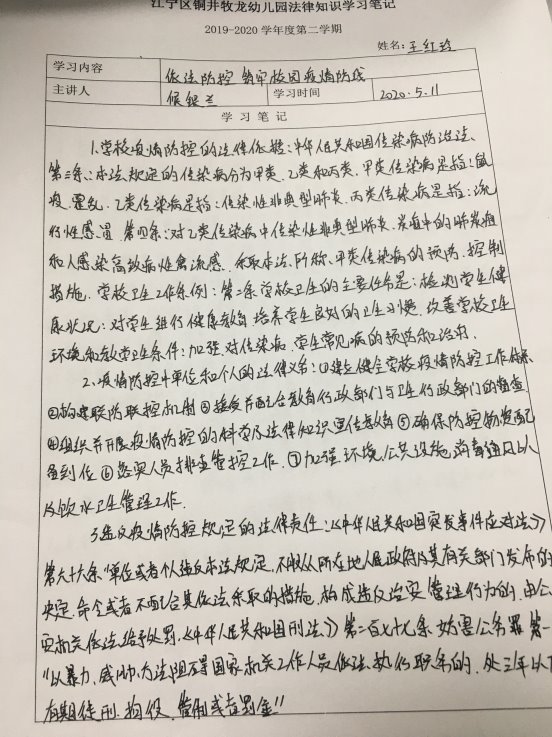 江宁区铜井牧龙幼儿园法律知识学习笔记
2019-2020 学年度第二学期
姓名:王红玲
学习内容 依法防控 筑牢校园疫情防线
主讲人 侯银兰 学习时间 2020.5.11
学 习 笔 记
1.学校疫情防控的法律依据:中华人民共和国传染病防治法、
第三条:本法规定的传染病分为甲类、乙类和丙类,甲类传染病是指:鼠
疫、霍乱,乙类传染病是指:传染性非典型肺炎,丙类传染病是指:流
行性感冒、第四条:对乙类传染病中传染性非典型肺炎、炭疽中的肺炭疽
和人感染高致病性禽流感,采取本法所称甲类传染病的预防、控制
措施。学校卫生工作条例:第二条学校卫生的主要任务是:检测学生健
康状况:对学生进行健康教育,培养学生良好的卫生习惯,改善学校卫生
环境和教学卫生条件:加强对传染病、学生常见病的预防和治疗。
2.疫情防控中单位和个人的法律义务:①建立健全学校疫情防控工作体系
②构建联防联控机制③接受并配合教育行政部门与卫生行政部门的督查
④组织开展疫情防控的科学及法律知识宣传教育⑤确保防控物资配
备到位⑥落实人员排查管控工作。⑦加强环境、公共设施消毒通风以
及饮水卫生管理工作。
3.违反疫情防控规定的法律责任:《中华人民共和国突发事件应对法》
第六十六条"单位或者个人违反本法规定,不服从所在地人民政府及其有关部门发布的
决定、命令或者不配合其依法采取的措施,构成违反治安管理行为的,由公
安机关依法给予处罚。《中华人民共和国刑法》第二百七十七条妨害公务罪第一
"以暴力、威胁方法阻碍国家机关工作人员依法执行职务的,处三年以下
有期徒刑、拘役、管制或者罚金"